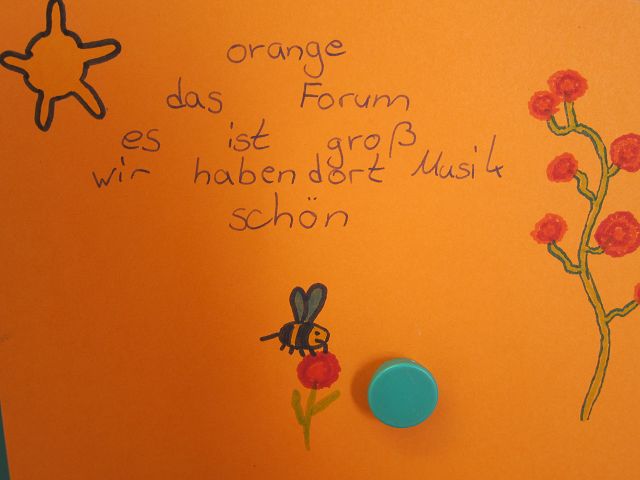 orange
das Forum
es ist groß
wir haben dort Musik
schön